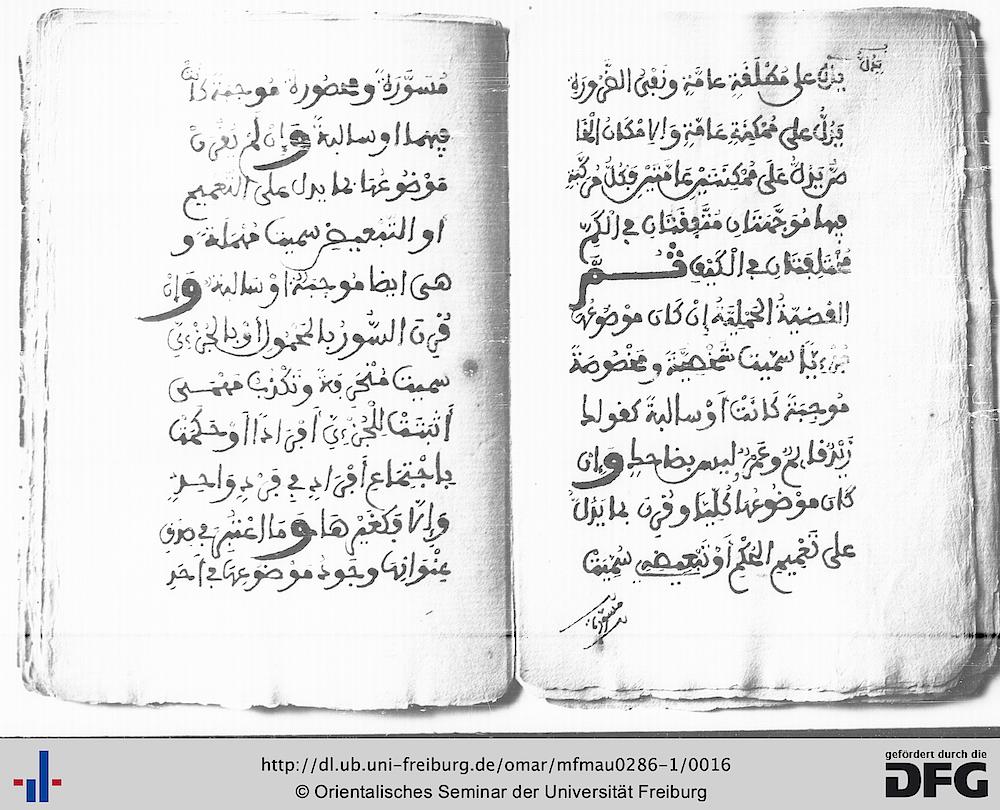 يدل
يدل على مطلقة عامة ونفى الضرورة
يدل على ممكنة عامة والامكان الخا
ص يدل على ممكنتين عامتين فكل مركبة
فيها موجهتان متفقتان في الكم
مختلفتان في الكيف ثم
القضية الحملية إن كان موضوعها
جزءيا سميت شخصية ومخصوصة
موجبة كانت أو سالبة كقولك
زيد قايم وعمر ليس بضاحك وإن
كان موضوعها كليا وقرن بما يدل
على تعميم الحكم أو تبعيضه سميت
مسورة
مسورة ومحصورة موجبة كانت
فيهما او سالبة وإن لم يقرن
موضوعها بما يدل على التعميم
أو التبعيض سميت مهملة و
هى ايضا موجبة أو سالبة وإن
قرن السور بالمحمول أو بالجزءي
سميت منحرفة وتكذب مهمى
أثبتت للجزءي أفرادا أو حكمت
باجتماع أفراد في فرد واحد
وإلا فكغيرها وما اعتبر في صدق
عنوانها وجود موضوعها في أحد
http://dl.ub.uni-freiburg.de/omar/mfmau0286-1/0016
© Orientalisches Seminar der Universität Freiburg
gefördert durch die
DFG